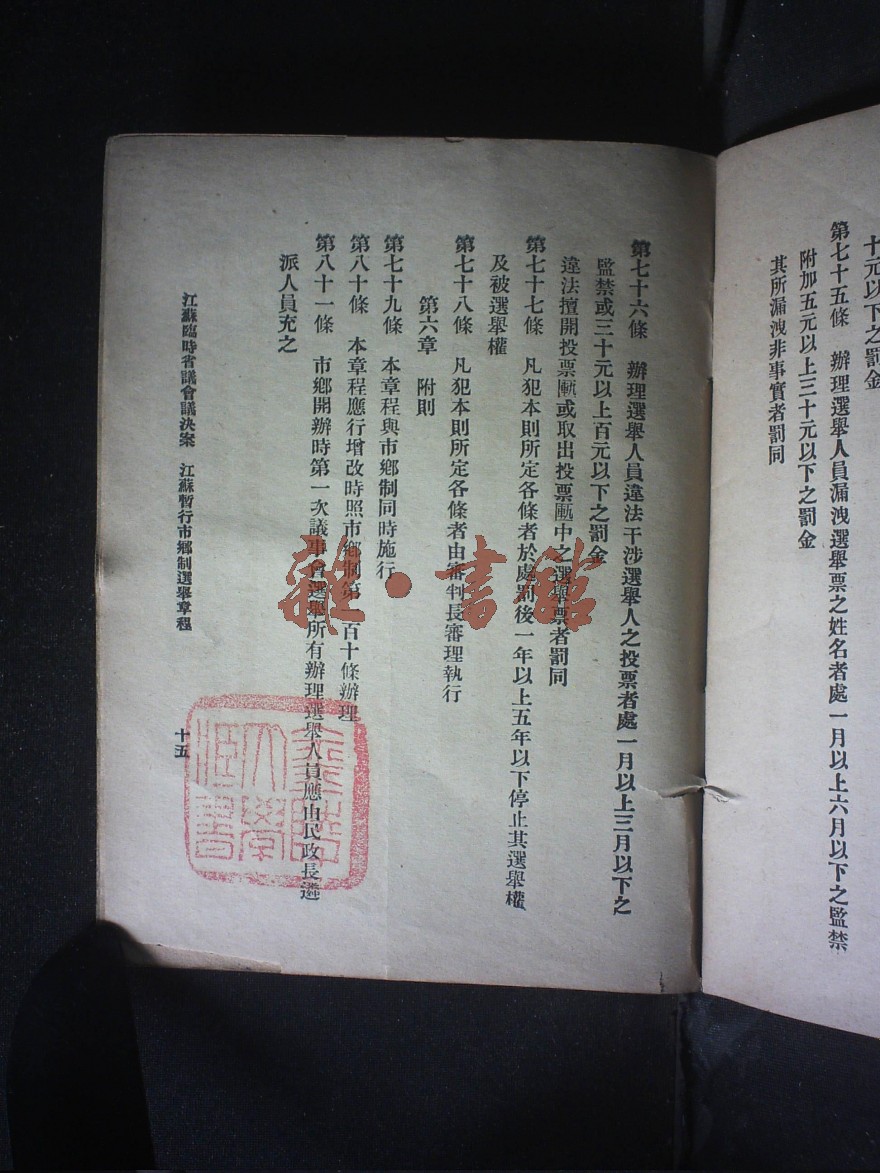 十元以下之罰金
第七十五條　辦理選舉人員漏洩選舉票之姓名者處一月以上六月以下之監禁
附加五元以上三十元以下之罰金
其所漏洩非事實者罰同
第七十六條　辦理選舉人員違法干涉選舉人之投票者處一月以上三月以下之
監禁或三十元以上百元以下之罰金
違法擅開投票匭或取出投票匭中之選舉票者罰同
第七十七條　凡犯本則所定各條者於處罰後一年以上五年以下停止其選舉權
及被選舉權
第七十八條　凡犯本則所定各條者由審判長審理執行
第六章　附則
第七十九條　本章程與市鄉制同時施行
第八十條　本章程應行增改時照市鄉制第一百十條辦理
第八十一條　市鄉開辦時第一次議事會選舉所有辦理選舉人員應由民政長遴
派人員充之
江蘇臨時省議會議決案　江蘇暫行市鄉制選舉章程
十五
雜·書館
金陵
大學
藏書